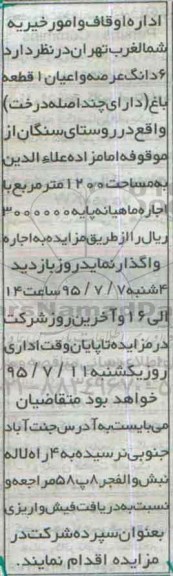 اداره اوقاف و امور خیریه
شمالغرب تهران در نظر دارد
۶ دانگ عرصه و اعیان ۱ قطعه
باغ (دارای چند اصله درخت)
واقع در روستای سنگان از
موقوفه امامزاده علاء الدین
به مساحت ۱۲۰۰ متر مربع با
اجاره ماهیانه پایه ۳۰۰۰۰۰۰
ریال را از طریق مزایده به اجاره
واگذار نماید روز بازدید
۴شنبه ۹۵/۷/۷ ساعت ۱۴
الی ۱۶ و آخرین روز شرکت
در مزایده تا پایان وقت اداری
روز یکشنبه ۹۵/۷/۱۱
خواهد بود متقاضیان
می بایست به آدرس جنت آباد
جنوبی نرسیده به ۴ راه لاله
نبش والفجر ۸ پ ۵۸ مراجعه و
نسبت به دریافت فیش واریزی
بعنوان سپرده شرکت در
مزایده اقدام نمایند.